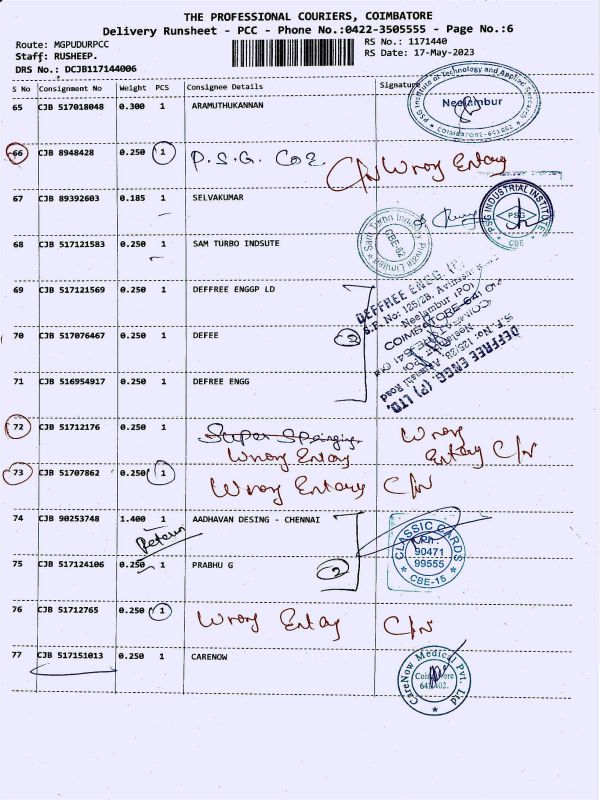 THE PROFESSIONAL COURIERS, COIMBATORE
Delivery Runsheet - PCC - Phone No.:0422-3505555 - Page No.:6
Route: MGPUDURPCC
RS No.: 1171440
Staff: RUSHEEP.
RS Date: 17-May-2023
DRS No.: DCJB117144006
S No Consignment No Weight PCS Consignee Details Signature
65 CJB 517018048 0.300 1 ARAMUTHUKANNAN
PSG Institute of Technology and Applied Research
Neelambur
COIMBATORE-641062
66 CJB 8948428 0.250 1 P.S.G. COE. C/N Wrong Entary
67 CJB 89392603 0.185 1 SELVAKUMAR
PSG INDUSTRIAL INSTITUTE
PSG
CBE
68 CJB 517121583 0.250 1 SAM TURBO INDSUTE
Sam Turbo Industry Private Limited
CBE-62
69 CJB 517121569 0.250 1 DEFFREE ENGGP LD
DEFFREE ENGG. (P)
S.F. No: 125/2B, Avinashi
Neelambur (PO)
COIMBATORE-641
70 CJB 517076467 0.250 1 DEFEE 3
DEFFREE ENGG. (P) LTD.
S.F. No: 125/2B, Avinashi Road
71 CJB 516954917 0.250 1 DEFREE ENGG
72 CJB 51712176 0.250 1 Wrong Entary Wrong Entary C/N
73 CJB 51707862 0.250 1 Wrong Entary C/N
74 CJB 90253748 1.400 1 AADHAVAN DESING - CHENNAI
CLASSIC CARDS
90471
99555
CBE-15
75 CJB 517124106 0.250 1 PRABHU G 2
76 CJB 51712765 0.250 1 Wrong Entary C/N
77 CJB 517151013 0.250 1 CARENOW
CareNow Medical Pvt. Ltd
Coimbatore
641402.